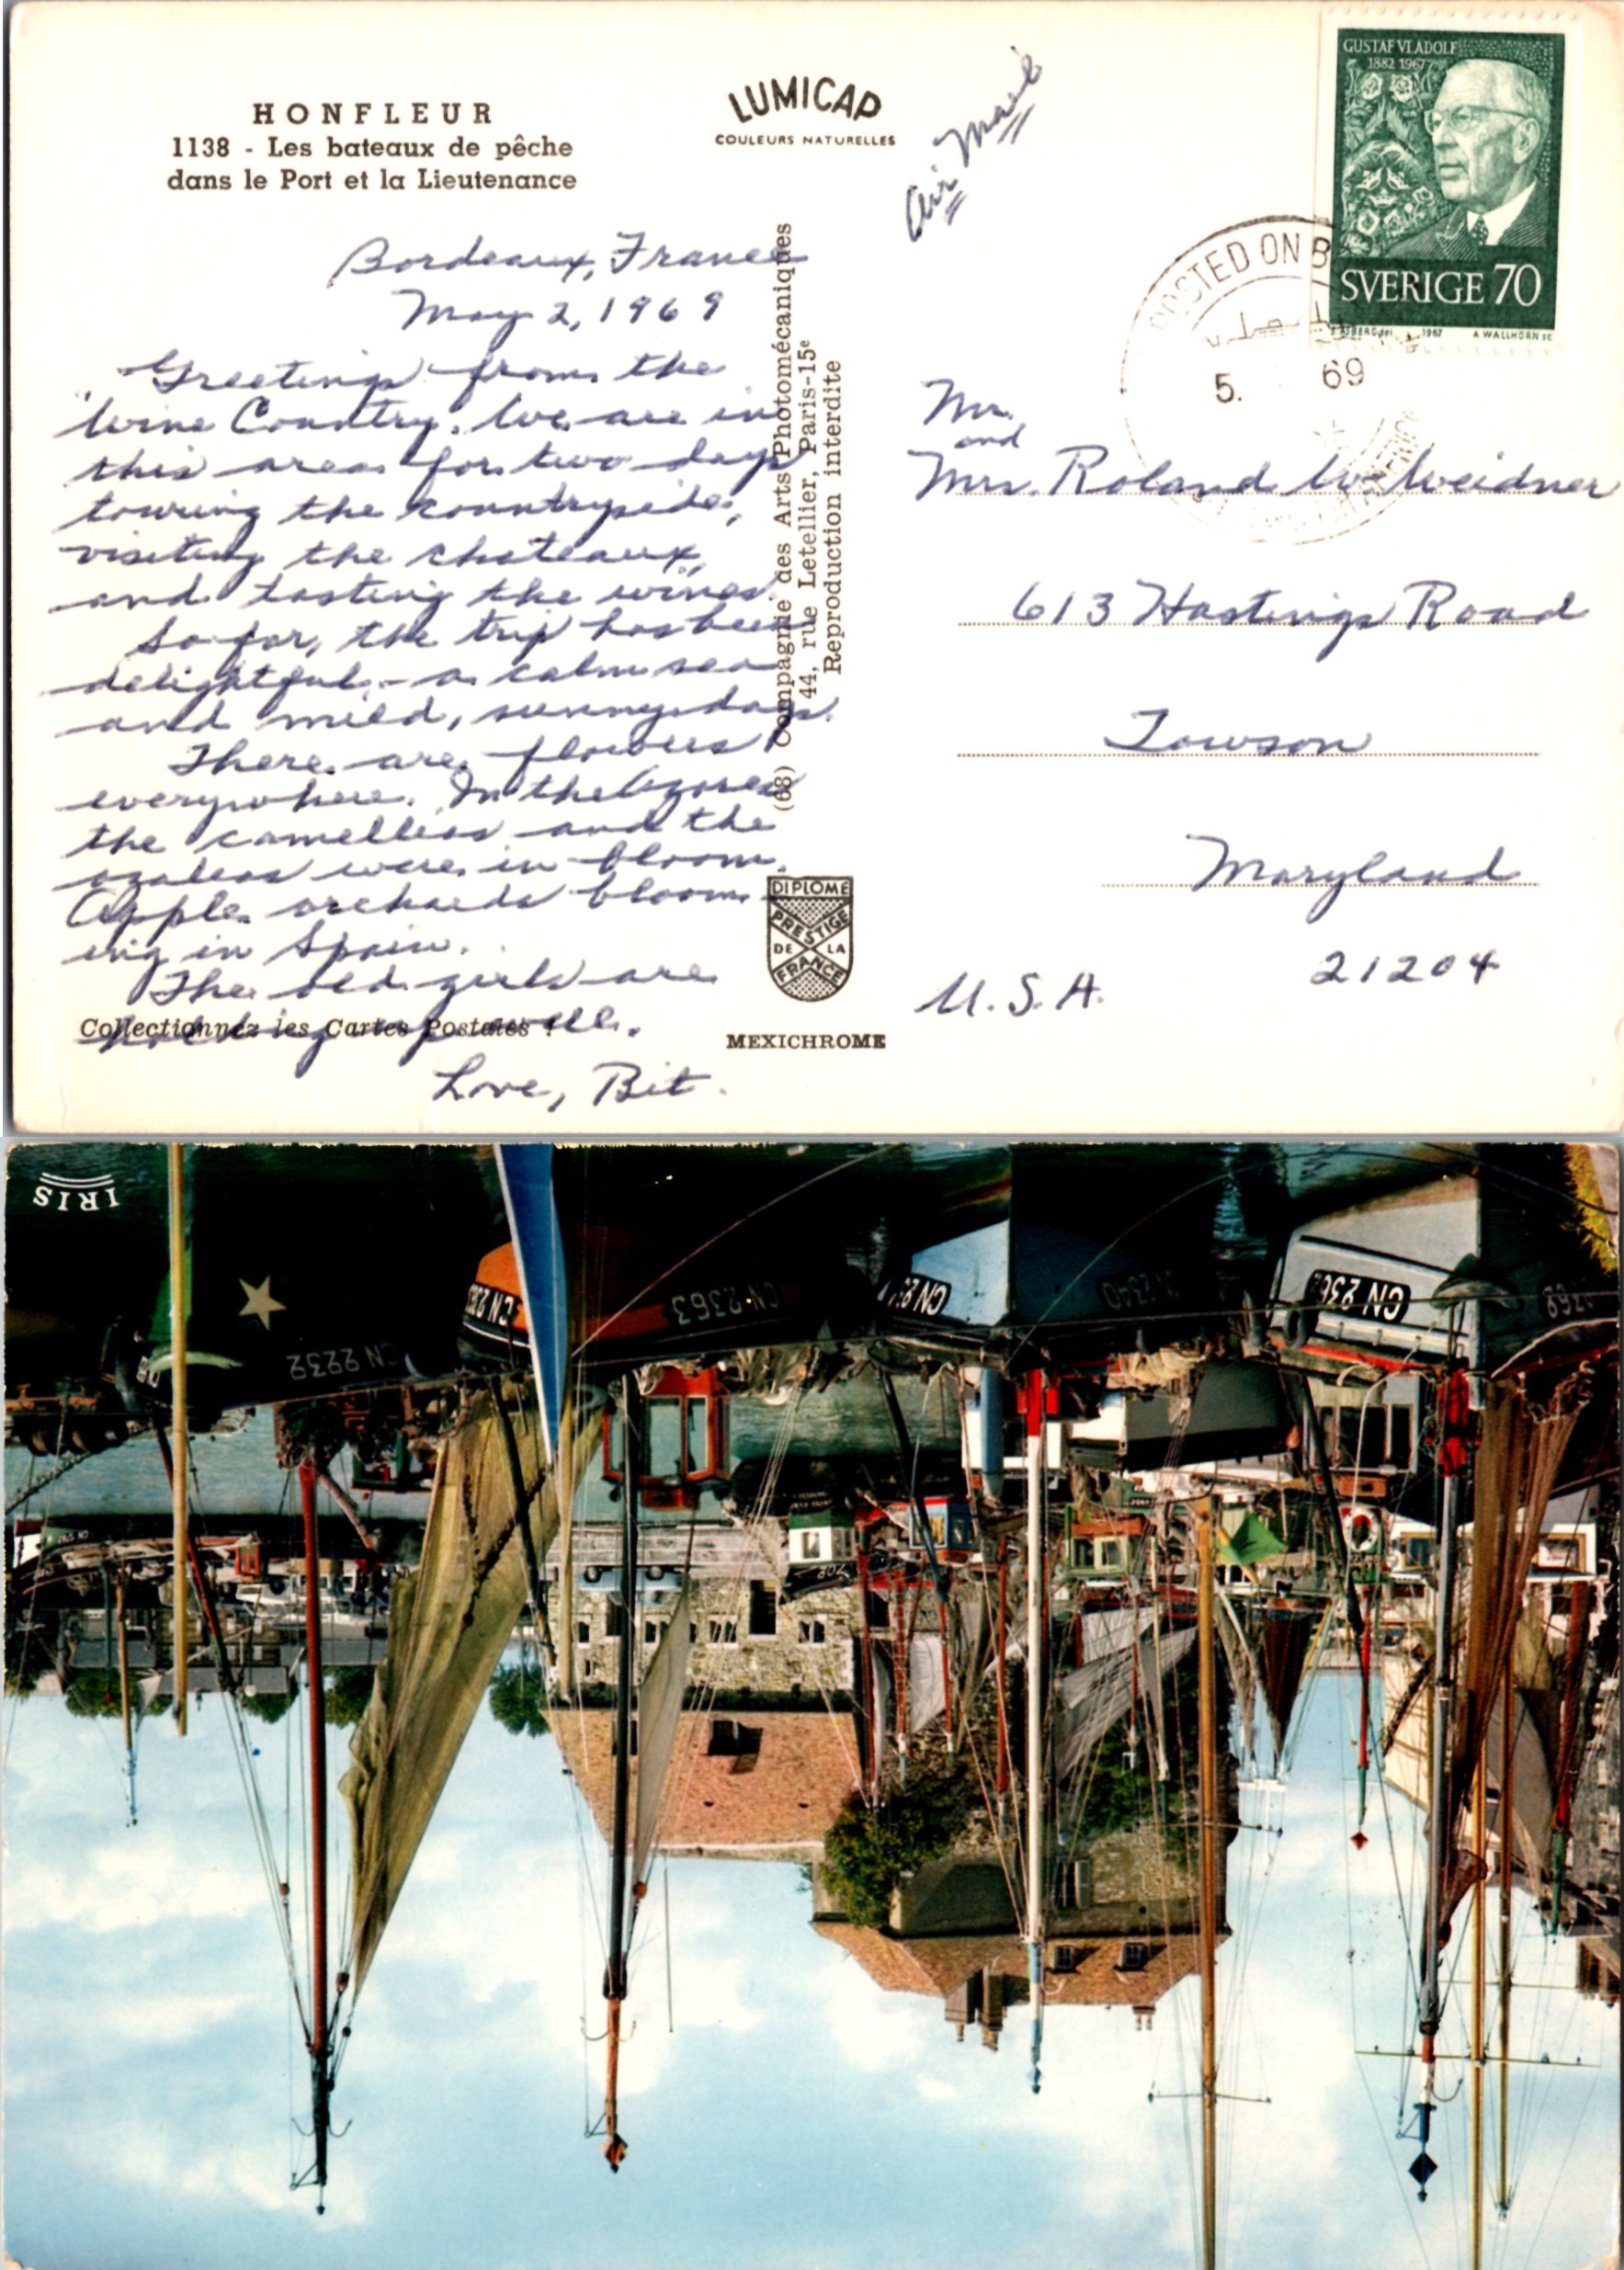 HONFLEUR
1138 - Les bateaux de pêche
dans le Port et la Lieutenance
LUMICAP
COULEURS NATURELLES
Air Mail
GUSTAF VI ADOLF
1882 1967
SVERIGE 70
1967 A WALLHORN SC
POSTED ON B
5. 69
Bordeaux, France
May 2, 1969
Greetings from the
Wine Country. We are in
this area for two days
touring the countryside,
visiting the chateaux,
and tasting the wines.
So far, the trip has been
delightful - a calm sea
and mild, sunny days.
There are flowers
everywhere. In the Azores
the camellias and the
azaleas were in bloom.
Apple orchards bloom-
ing in Spain.
The old girls are
holding up well.
Love, Bit.
Collectionnez les Cartes Postales !
(68) Compagnie des Arts Photomécaniques
44, rue Letellier, Paris-15e
Reproduction interdite
DIPLOME
PRESTIGE
DE LA
FRANCE
MEXICHROME
Mr.
and
Mrs. Roland W. Weidner
613 Hastings Road
Towson
Maryland
21204
U.S.A.
IRIS
CN 2232
CN 2363
2340
CN 236